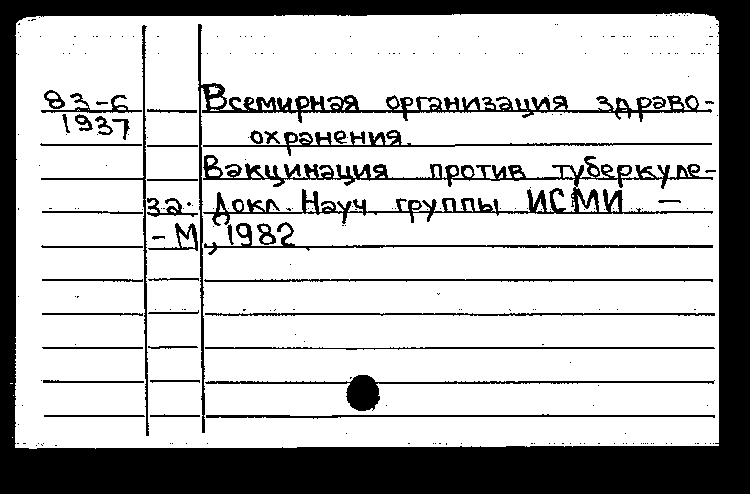 83-6 Всемирная организация здраво-
1937 охранения.
Вакцинация против туберкуле-
за. Докл. Науч. группы ИСМИ —
- М., 1982.